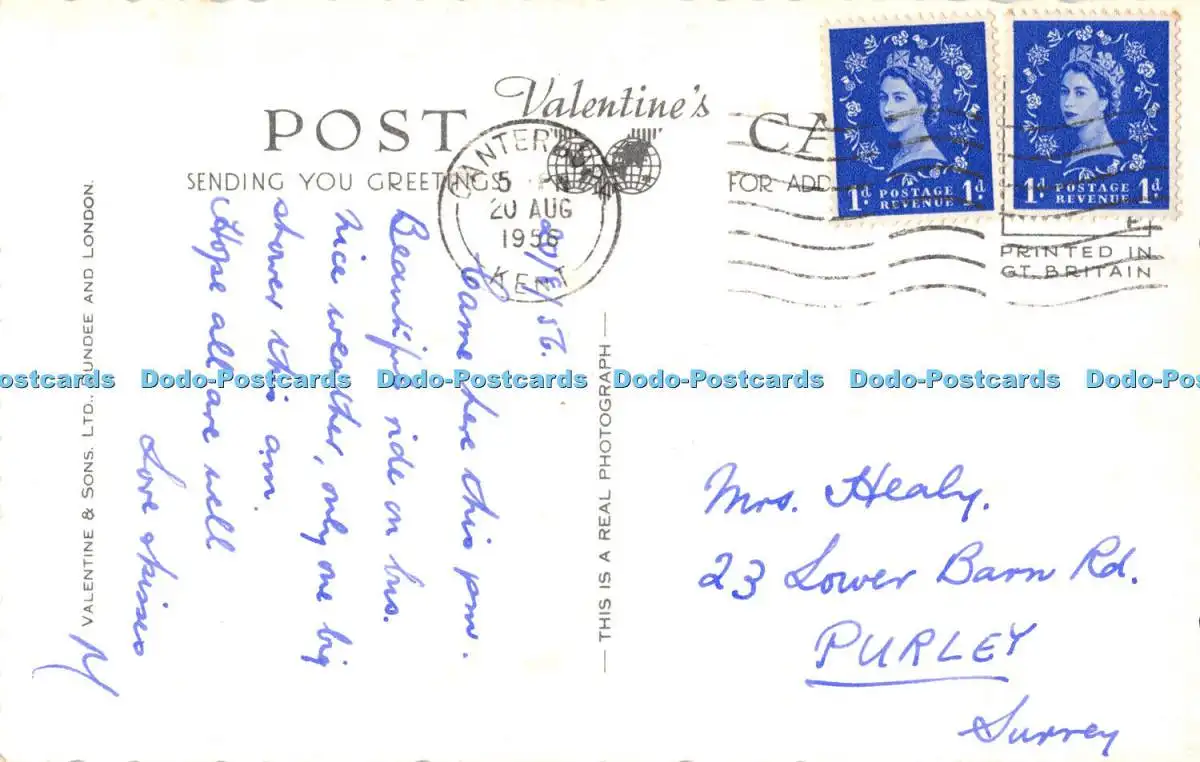 Valentine's
POST CA
SENDING YOU GREETINGS
FOR ADD
CANTERBURY
5 PM
20 AUG
1956
KENT
1d. POSTAGE REVENUE 1d.
1d. POSTAGE REVENUE 1d.
PRINTED IN
GT. BRITAIN
VALENTINE & SONS. LTD., DUNDEE AND LONDON.
— THIS IS A REAL PHOTOGRAPH —
20/8/56.
Came here this pm.
Beautiful ride on bus.
Nice weather, only one big
shower this am.
Hope all are well
Love & kisses
Mrs. Healy.
23 Lower Barn Rd.
PURLEY
Surrey
ostcards Dodo-Postcards Dodo-Postcards Dodo-Postcards Dodo-Postcards Dodo-P